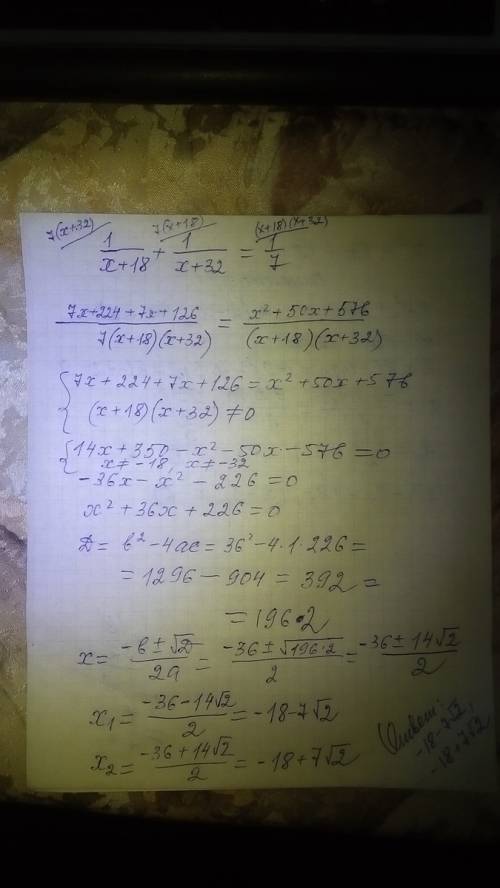 7(x+32) 7(x+18) (x+18)(x+32)
1/(x+18) + 1/(x+32) = 1/7
(7x+224+7x+126)/(7(x+18)(x+32)) = (x²+50x+576)/((x+18)(x+32))
{7x+224+7x+126=x²+50x+576
(x+18)(x+32)≠0
{14x+350-x²-50x-576=0
x≠-18, x≠-32
-36x-x²-226=0
x²+36x+226=0
Д=b²-4ac=36²-4·1·226=
=1296-904=392=
=196·2
x=(-b±√Д)/2a=(-36±√196·2)/2=(-36±14√2)/2
x₁=(-36-14√2)/2=-18-7√2
x₂=(-36+14√2)/2=-18+7√2
Ответ:
-18-7√2,
-18+7√2